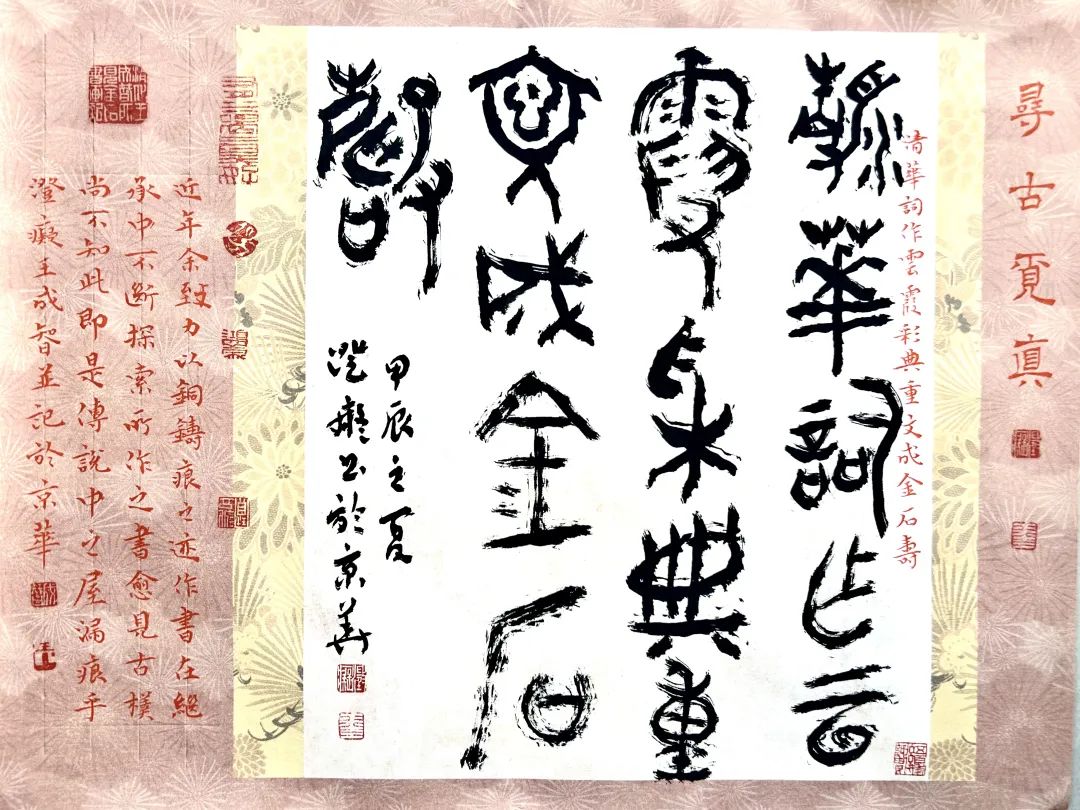 尋古覓眞
清華詞作雲霞彩典重文成金石壽
清華詞作云
霞采典重
文成金石
壽
甲辰之夏
澄癡書於京華
近年余致力以銅鑄痕之迹作書在繼
承中不斷探索所作之書愈見古樸
尚不知此即是傳說中之屋漏痕乎
澄癡王成智並記於京華